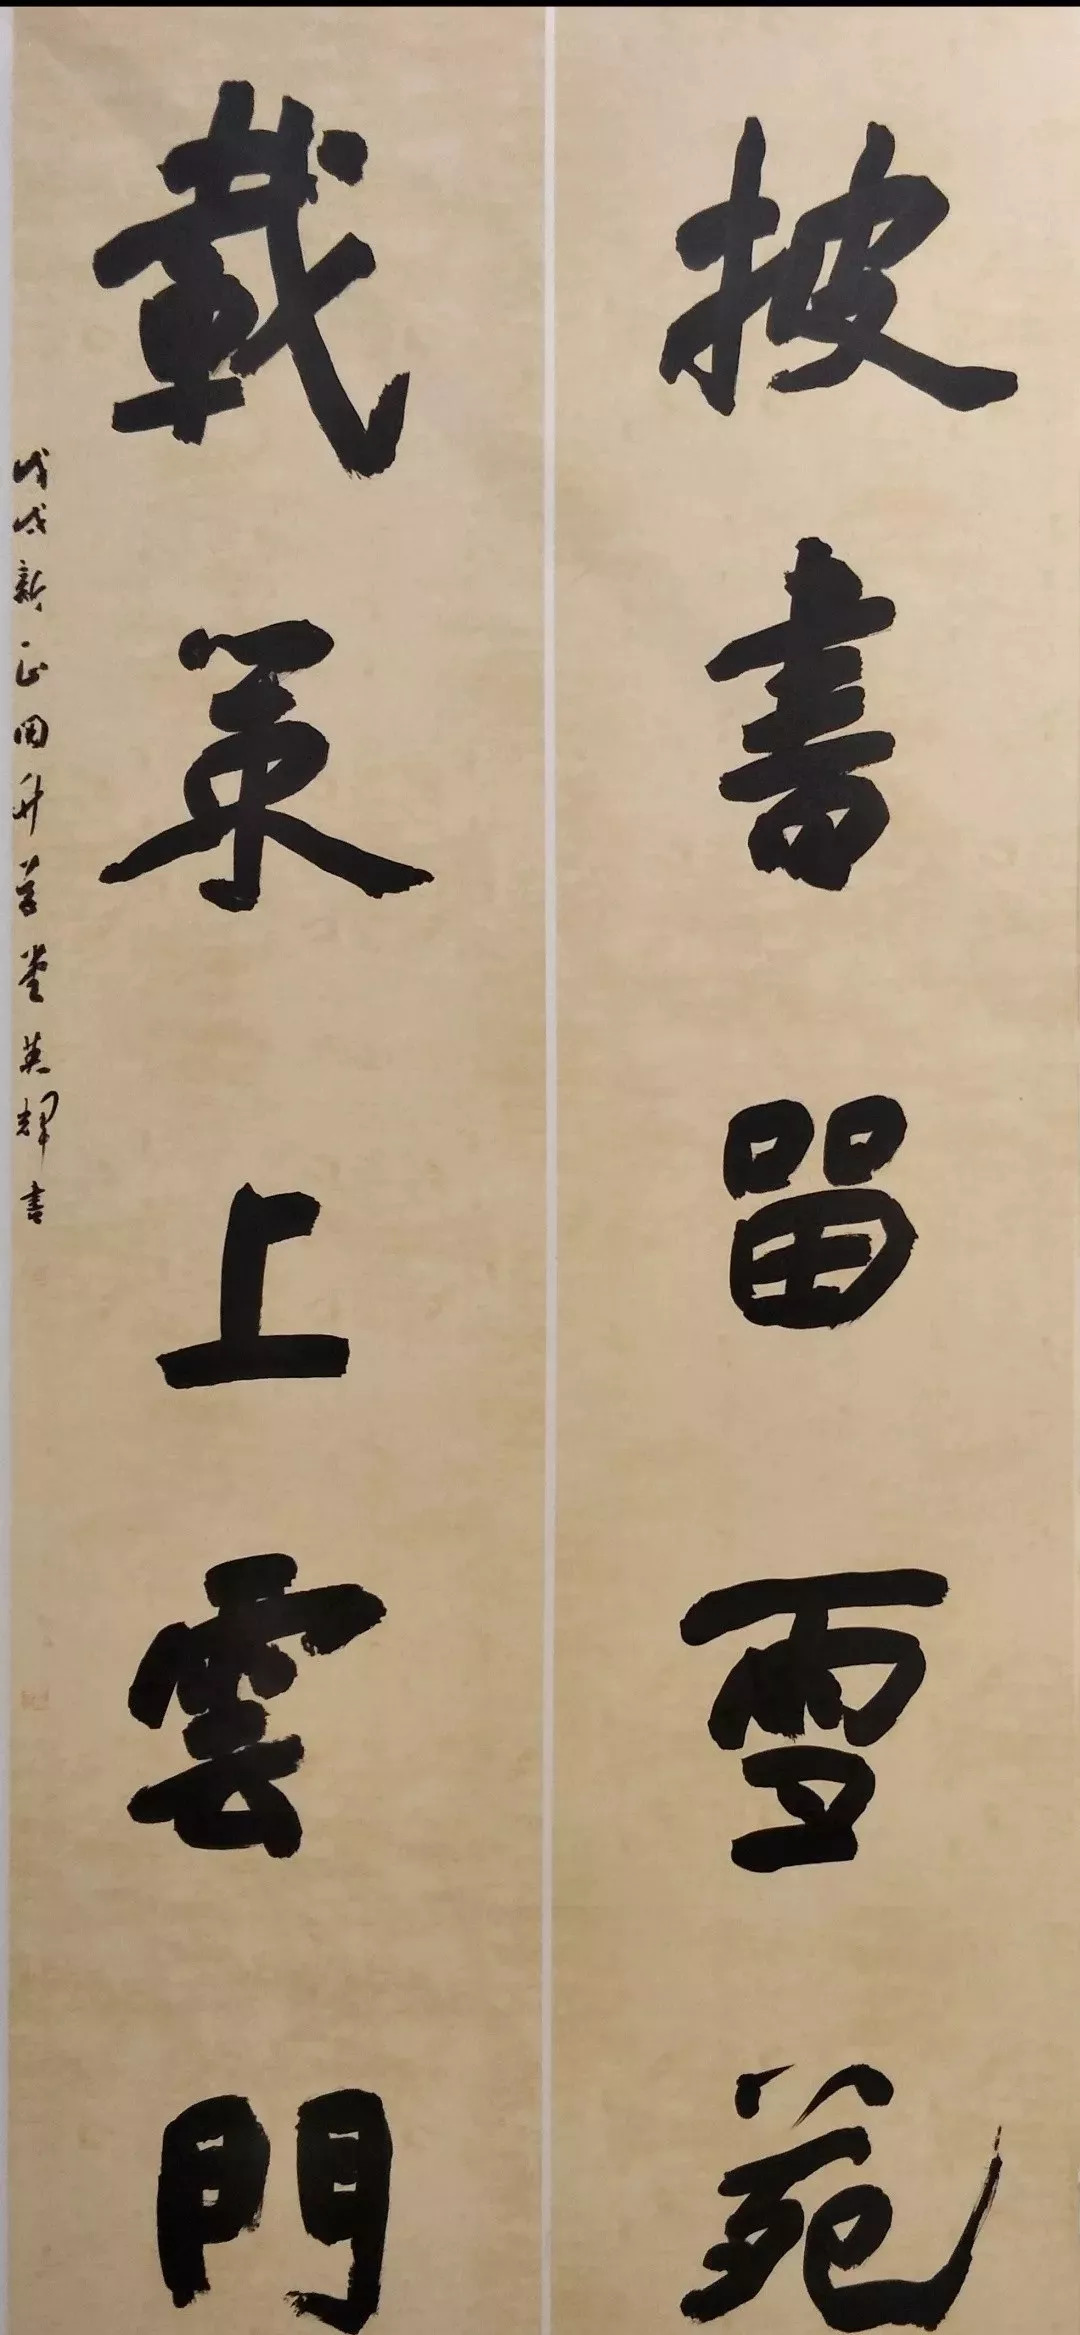 披書留雪苑
載策上雲門
戊戌新正月升草堂英輝書